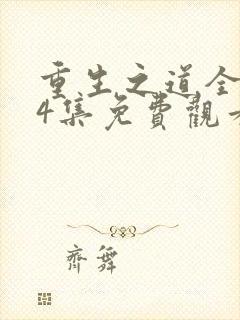 重生之道全
4集免費觀
齊舞